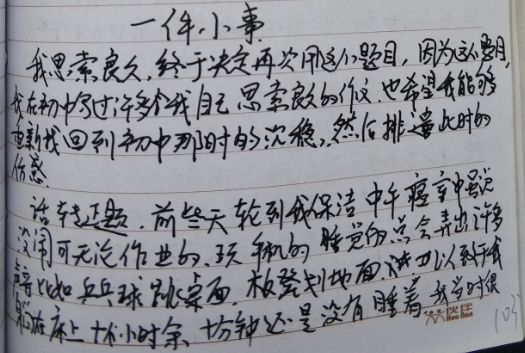 一件小事
我思索良久,终于决定再次用这个题目,因为这个题目,
我在初中写过许多个我自己思索良久的作文,也希望我能够
重新找回到初中那时的沉稳,然后排遣此时的
伤感.
话转正题.前些天轮到我保洁中午寝室中虽说
没闹可无论作业的、玩手机的 睡觉的总会弄出许多
声音比如乒乓球跳桌面,板凳划地面 以至于我
躺在床上十个小时余 十分钟还是没有睡着 我当时很
伙伴
Huo Ban
103